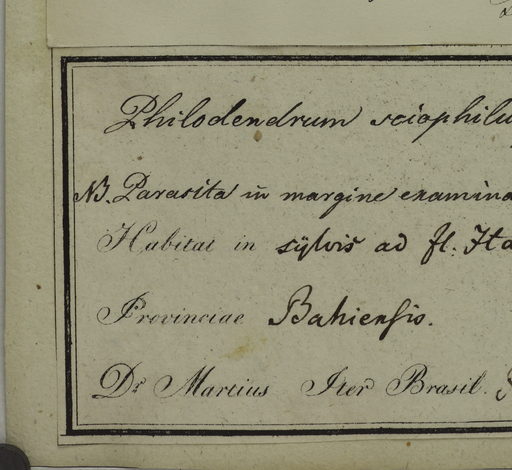 Philodendrum sciophilu
NB. Parasita in margine examina
Habitat in sÿlvis ad fl. Ita
Provinciae Bahiensis.
Dr Martius Iter Brasil.